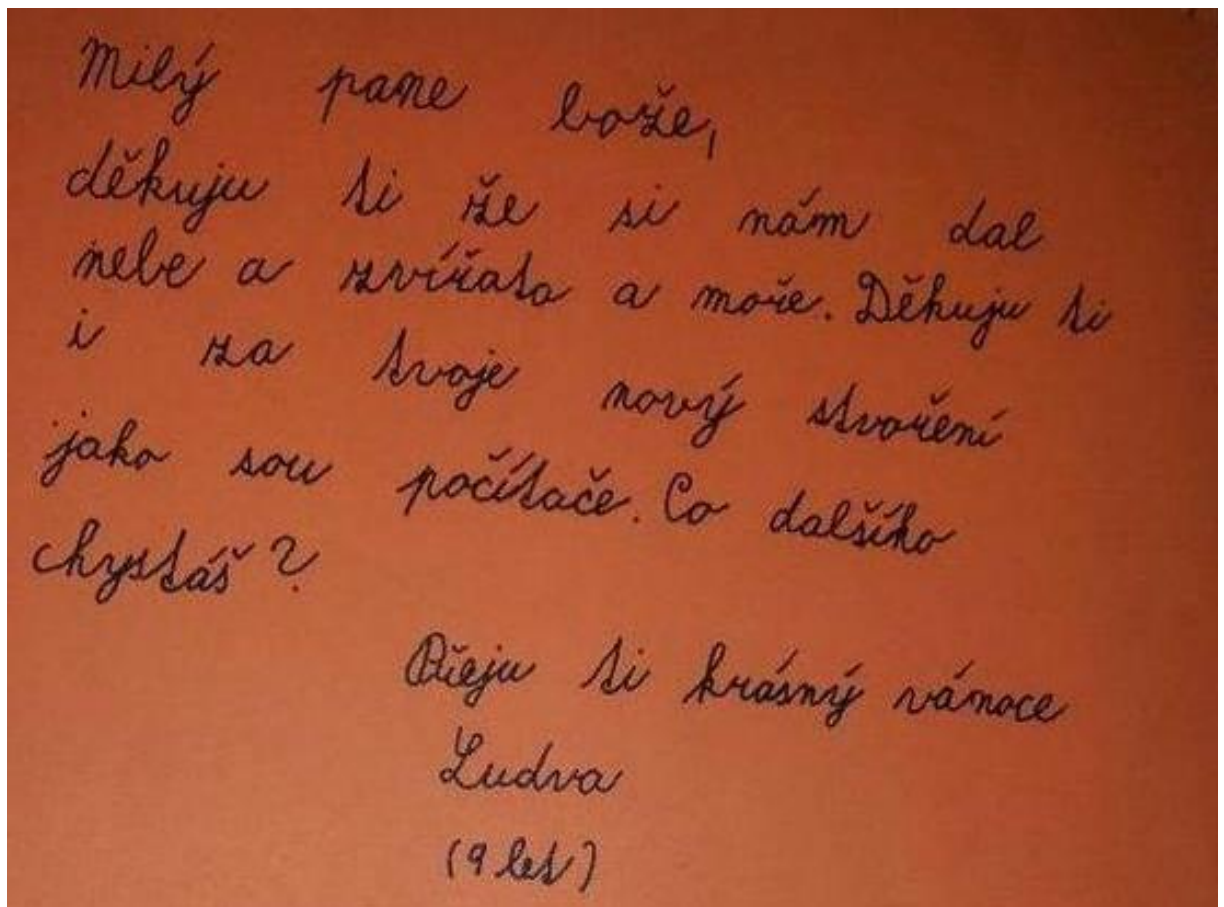 Milý pane bože,
děkuju ti že si nám dal
nebe a zvířata a moře. Děkuju ti
i za tvoje nový stvoření
jako sou počítače. Co dalšího
chystáš?
Přeju ti krásný vánoce
Ludva
(9 let)